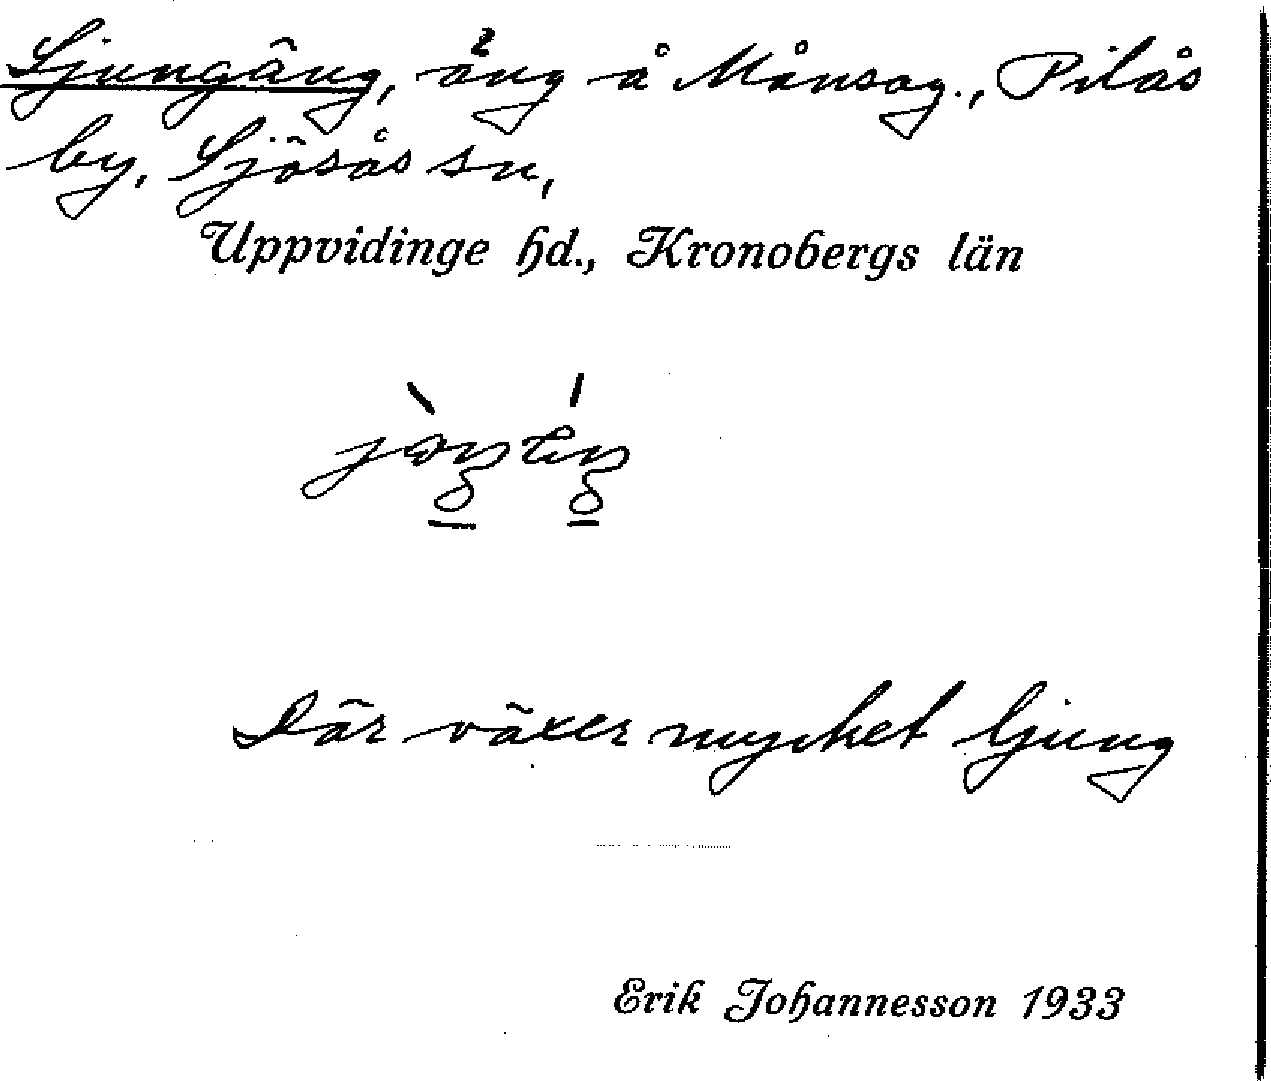 Ljungäng, äng å Månsag., Pilås
by, Sjösås sn,
Uppvidinge hd., Kronobergs län
Där växer mycket ljung
Erik Johannesson 1933